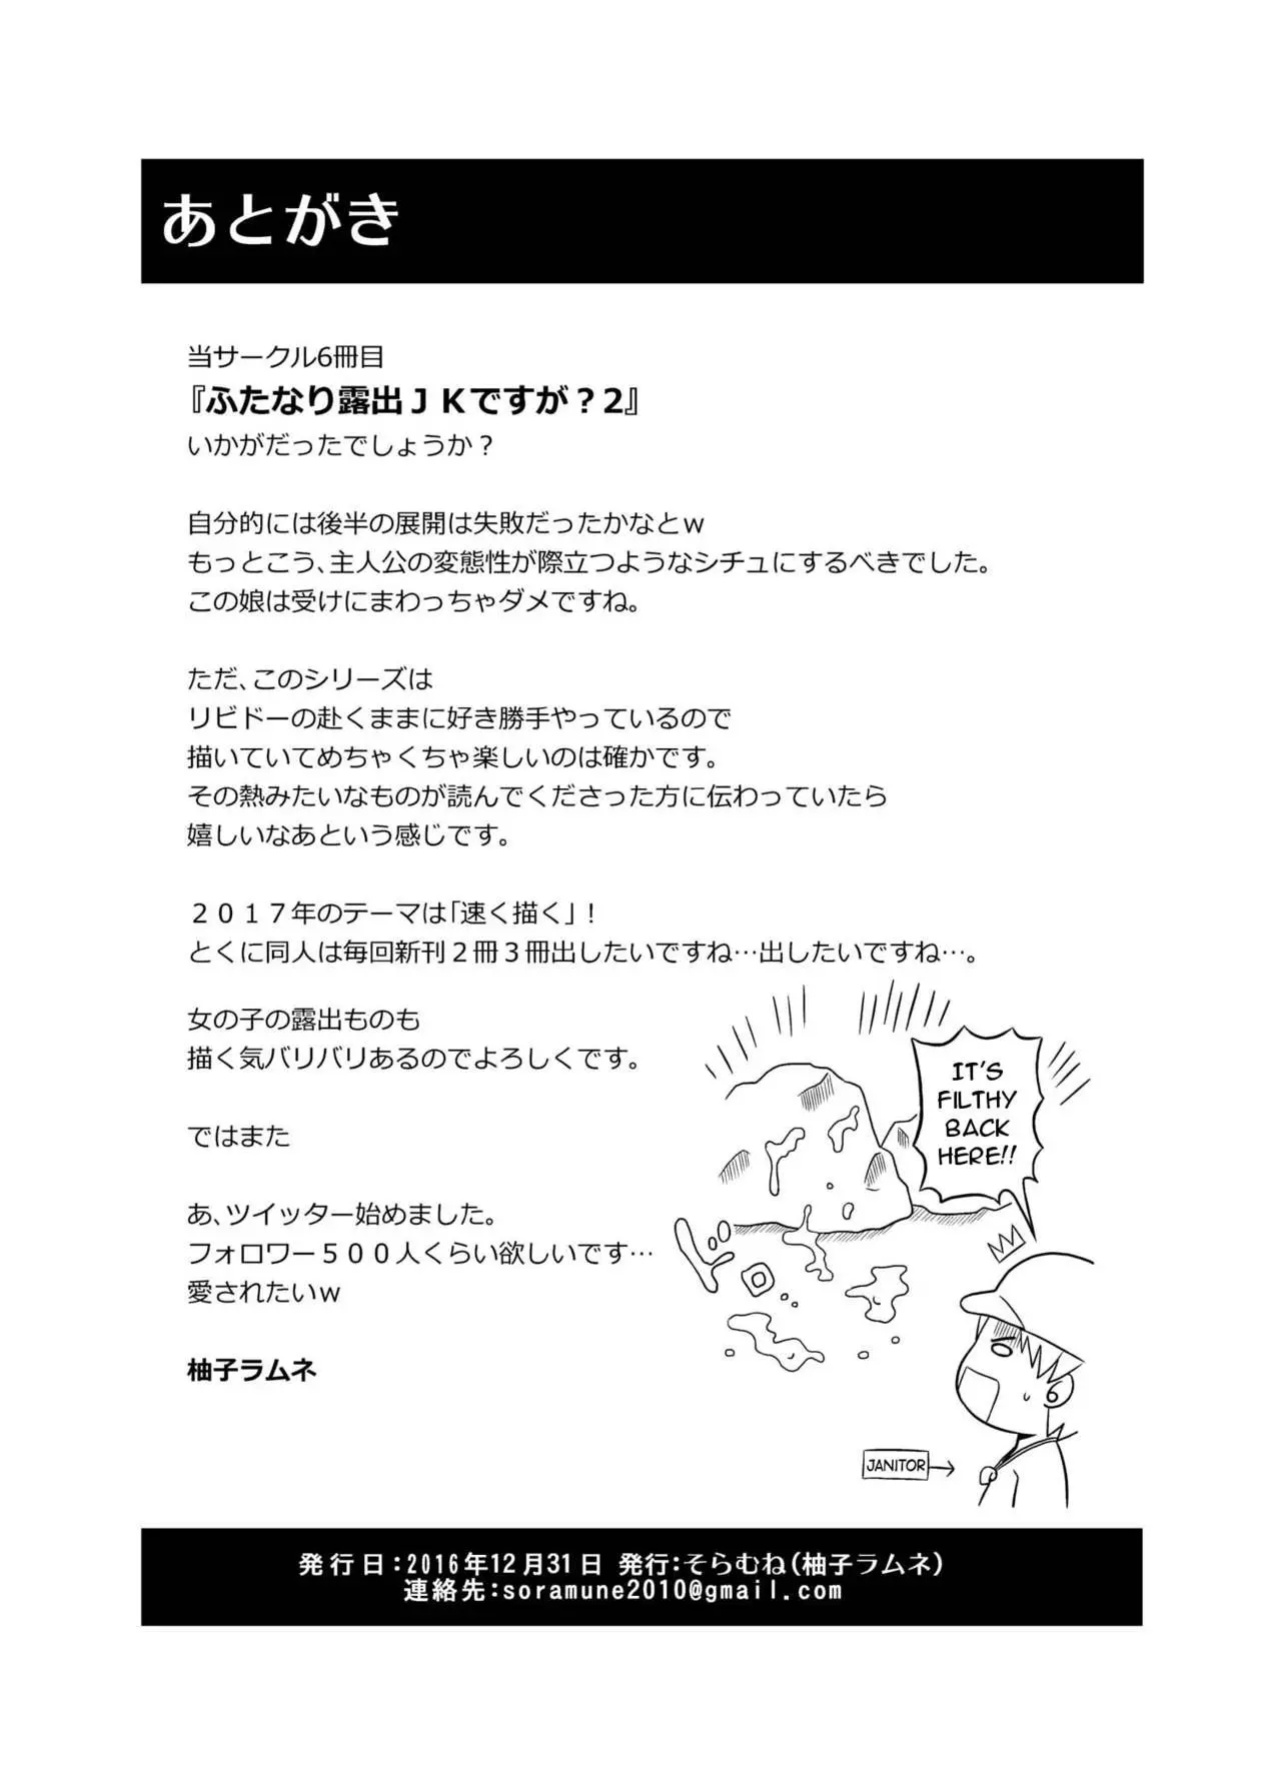 あとがき
当サークル6冊目
『ふたなり露出ＪＫですが？2』
いかがだったでしょうか？
自分的には後半の展開は失敗だったかなとw
もっとこう、主人公の変態性が際立つようなシチュにするべきでした。
この娘は受けにまわっちゃダメですね。
ただ、このシリーズは
リビドーの赴くままに好き勝手やっているので
描いていてめちゃくちゃ楽しいのは確かです。
その熱みたいなものが読んでくださった方に伝わっていたら
嬉しいなあという感じです。
２０１７年のテーマは「速く描く」！
とくに同人は毎回新刊２冊３冊出したいですね…出したいですね…。
女の子の露出ものも
描く気バリバリあるのでよろしくです。
ではまた
あ、ツイッター始めました。
フォロワー５００人くらい欲しいです…
愛されたいｗ
柚子ラムネ
IT'S
FILTHY
BACK
HERE!!
JANITOR
発行日：2016年12月31日 発行：そらむね（柚子ラムネ）
連絡先：soramune2010@gmail.com